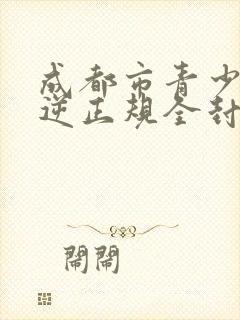 成都市青少
逆正规全封
闹闹